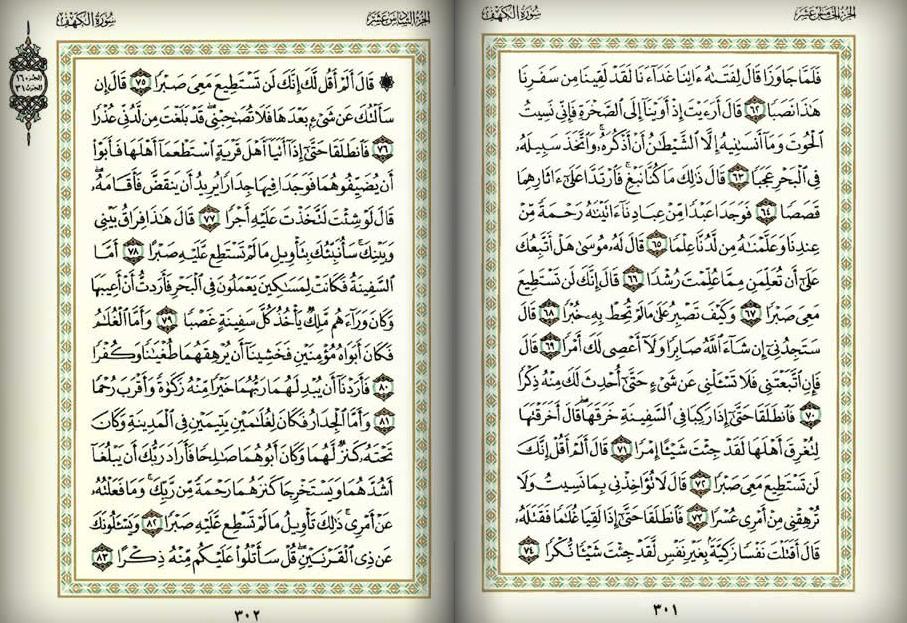 الجزء الخامس عشر
سورة الكهف
فَلَمَّا جَاوَزَا قَالَ لِفَتَىٰهُ ءَاتِنَا غَدَآءَنَا لَقَدْ لَقِينَا مِن سَفَرِنَا
هَٰذَا نَصَبًا ٦٢ قَالَ أَرَءَيْتَ إِذْ أَوَيْنَآ إِلَى ٱلصَّخْرَةِ فَإِنِّى نَسِيتُ
ٱلْحُوتَ وَمَآ أَنسَىٰنِيهُ إِلَّا ٱلشَّيْطَٰنُ أَنْ أَذْكُرَهُۥ وَٱتَّخَذَ سَبِيلَهُۥ
فِى ٱلْبَحْرِ عَجَبًا ٦٣ قَالَ ذَٰلِكَ مَا كُنَّا نَبْغِ ۚ فَٱرْتَدَّا عَلَىٰٓ ءَاثَارِهِمَا
قَصَصًا ٦٤ فَوَجَدَا عَبْدًا مِّنْ عِبَادِنَآ ءَاتَيْنَٰهُ رَحْمَةً مِّنْ
عِندِنَا وَعَلَّمْنَٰهُ مِن لَّدُنَّا عِلْمًا ٦٥ قَالَ لَهُۥ مُوسَىٰ هَلْ أَتَّبِعُكَ
عَلَىٰٓ أَن تُعَلِّمَنِ مِمَّا عُلِّمْتَ رُشْدًا ٦٦ قَالَ إِنَّكَ لَن تَسْتَطِيعَ
مَعِىَ صَبْرًا ٦٧ وَكَيْفَ تَصْبِرُ عَلَىٰ مَا لَمْ تُحِطْ بِهِۦ خُبْرًا ٦٨ قَالَ
سَتَجِدُنِىٓ إِن شَآءَ ٱللَّهُ صَابِرًا وَلَآ أَعْصِى لَكَ أَمْرًا ٦٩ قَالَ
فَإِنِ ٱتَّبَعْتَنِى فَلَا تَسْـَٔلْنِى عَن شَىْءٍ حَتَّىٰٓ أُحْدِثَ لَكَ مِنْهُ ذِكْرًا
٧٠ فَٱنطَلَقَا حَتَّىٰٓ إِذَا رَكِبَا فِى ٱلسَّفِينَةِ خَرَقَهَا ۖ قَالَ أَخَرَقْتَهَا
لِتُغْرِقَ أَهْلَهَا لَقَدْ جِئْتَ شَيْـًٔا إِمْرًا ٧١ قَالَ أَلَمْ أَقُلْ إِنَّكَ
لَن تَسْتَطِيعَ مَعِىَ صَبْرًا ٧٢ قَالَ لَا تُؤَاخِذْنِى بِمَا نَسِيتُ وَلَا
تُرْهِقْنِى مِنْ أَمْرِى عُسْرًا ٧٣ فَٱنطَلَقَا حَتَّىٰٓ إِذَا لَقِيَا غُلَٰمًا فَقَتَلَهُۥ
قَالَ أَقَتَلْتَ نَفْسًا زَكِيَّةًۢ بِغَيْرِ نَفْسٍ لَّقَدْ جِئْتَ شَيْـًٔا نُّكْرًا ٧٤
٣٠١
الجزء السادس عشر
سورة الكهف
الجزء ١٦
الحزب ٣١
۞ قَالَ أَلَمْ أَقُل لَّكَ إِنَّكَ لَن تَسْتَطِيعَ مَعِىَ صَبْرًا ٧٥ قَالَ إِن
سَأَلْتُكَ عَن شَىْءٍۭ بَعْدَهَا فَلَا تُصَٰحِبْنِى ۖ قَدْ بَلَغْتَ مِن لَّدُنِّى عُذْرًا
٧٦ فَٱنطَلَقَا حَتَّىٰٓ إِذَآ أَتَيَآ أَهْلَ قَرْيَةٍ ٱسْتَطْعَمَآ أَهْلَهَا فَأَبَوْا۟
أَن يُضَيِّفُوهُمَا فَوَجَدَا فِيهَا جِدَارًا يُرِيدُ أَن يَنقَضَّ فَأَقَامَهُۥ ۖ
قَالَ لَوْ شِئْتَ لَتَّخَذْتَ عَلَيْهِ أَجْرًا ٧٧ قَالَ هَٰذَا فِرَاقُ بَيْنِى
وَبَيْنِكَ ۚ سَأُنَبِّئُكَ بِتَأْوِيلِ مَا لَمْ تَسْتَطِع عَّلَيْهِ صَبْرًا ٧٨ أَمَّا
ٱلسَّفِينَةُ فَكَانَتْ لِمَسَٰكِينَ يَعْمَلُونَ فِى ٱلْبَحْرِ فَأَرَدتُّ أَنْ أَعِيبَهَا
وَكَانَ وَرَآءَهُم مَّلِكٌ يَأْخُذُ كُلَّ سَفِينَةٍ غَصْبًا ٧٩ وَأَمَّا ٱلْغُلَٰمُ
فَكَانَ أَبَوَاهُ مُؤْمِنَيْنِ فَخَشِينَآ أَن يُرْهِقَهُمَا طُغْيَٰنًا وَكُفْرًا
٨٠ فَأَرَدْنَآ أَن يُبْدِلَهُمَا رَبُّهُمَا خَيْرًا مِّنْهُ زَكَوٰةً وَأَقْرَبَ رُحْمًا
٨١ وَأَمَّا ٱلْجِدَارُ فَكَانَ لِغُلَٰمَيْنِ يَتِيمَيْنِ فِى ٱلْمَدِينَةِ وَكَانَ
تَحْتَهُۥ كَنزٌ لَّهُمَا وَكَانَ أَبُوهُمَا صَٰلِحًا فَأَرَادَ رَبُّكَ أَن يَبْلُغَآ
أَشُدَّهُمَا وَيَسْتَخْرِجَا كَنزَهُمَا رَحْمَةً مِّن رَّبِّكَ ۚ وَمَا فَعَلْتُهُۥ
عَنْ أَمْرِى ۚ ذَٰلِكَ تَأْوِيلُ مَا لَمْ تَسْطِع عَّلَيْهِ صَبْرًا ٨٢ وَيَسْـَٔلُونَكَ
عَن ذِى ٱلْقَرْنَيْنِ ۖ قُلْ سَأَتْلُوا۟ عَلَيْكُم مِّنْهُ ذِكْرًا ٨٣
٣٠٢